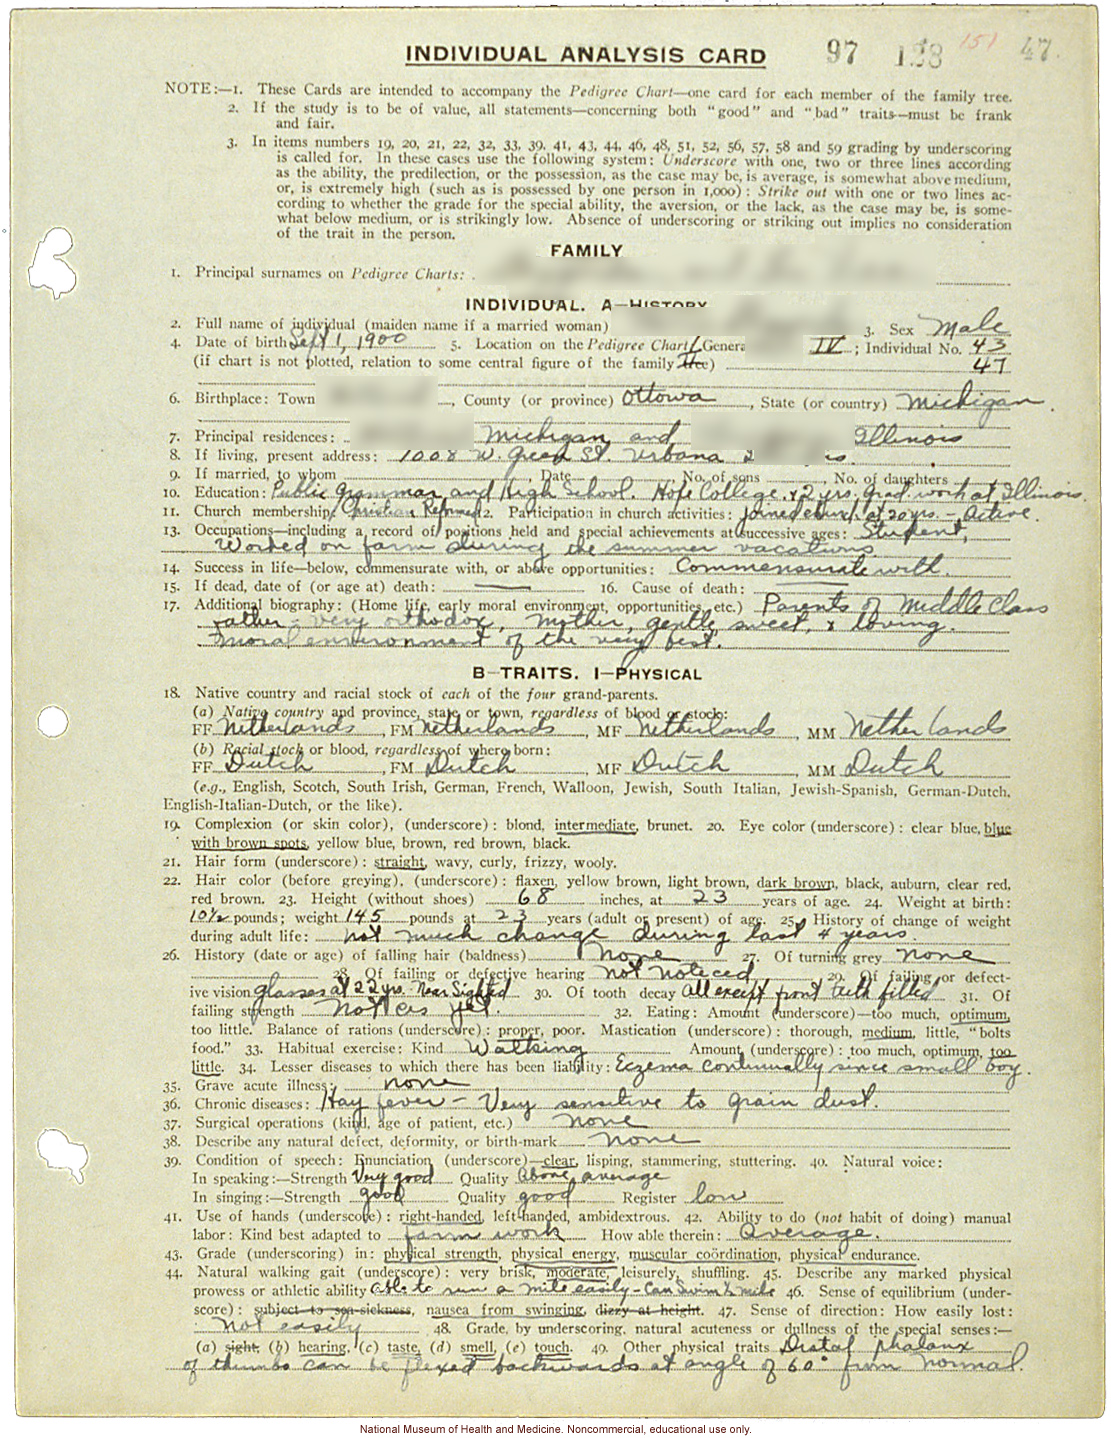 INDIVIDUAL ANALYSIS CARD 97 128 151 47.
NOTE:—1. These Cards are intended to accompany the Pedigree Chart—one card for each member of the family tree.
2. If the study is to be of value, all statements—concerning both "good" and "bad" traits—must be frank
and fair.
3. In items numbers 19, 20, 21, 22, 32, 33, 39, 41, 43, 44, 46, 48, 51, 52, 56, 57, 58 and 59 grading by underscoring
is called for. In these cases use the following system: Underscore with one, two or three lines according
as the ability, the predilection, or the possession, as the case may be, is average, is somewhat above medium,
or, is extremely high (such as is possessed by one person in 1,000): Strike out with one or two lines ac-
cording to whether the grade for the special ability, the aversion, or the lack, as the case may be, is some-
what below medium, or is strikingly low. Absence of underscoring or striking out implies no consideration
of the trait in the person.
FAMILY
1. Principal surnames on Pedigree Charts:
INDIVIDUAL. A—HISTORY
2. Full name of individual (maiden name if a married woman) 3. Sex Male
4. Date of birth Sept 1, 1900 5. Location on the Pedigree Chart: Genera IV; Individual No. 43
(if chart is not plotted, relation to some central figure of the family tree) 47
6. Birthplace: Town , County (or province) Ottowa, State (or country) Michigan.
7. Principal residences: Michigan, and Illinois
8. If living, present address: 1008 W. Green St. Urbana
9. If married, to whom , Date , No. of sons , No. of daughters
10. Education: Public Grammar and High School. Hope College. & 2 yrs. Grad. work at Illinois.
11. Church membership: Christian Reformed 12. Participation in church activities: Joined church at 20 yrs. - Active.
13. Occupations—including a record of positions held and special achievements at successive ages: Student,
Worked on farm during the summer vacations
14. Success in life—below, commensurate with, or above opportunities: Commensurate with.
15. If dead, date of (or age at) death: — 16. Cause of death: —
17. Additional biography: (Home life, early moral environment, opportunities, etc.) Parents of middle class
Father - very orthodox, Mother, gentle, sweet, & loving.
Moral environment of the very best.
B—TRAITS. I—PHYSICAL
18. Native country and racial stock of each of the four grand-parents.
(a) Native country and province, state or town, regardless of blood or stock:
FF Netherlands, FM Netherlands, MF Netherlands, MM Netherlands
(b) Racial stock or blood, regardless of where born:
FF Dutch, FM Dutch, MF Dutch, MM Dutch
(e.g., English, Scotch, South Irish, German, French, Walloon, Jewish, South Italian, Jewish-Spanish, German-Dutch,
English-Italian-Dutch, or the like).
19. Complexion (or skin color), (underscore): blond, intermediate, brunet. 20. Eye color (underscore): clear blue, blue
with brown spots, yellow blue, brown, red brown, black.
21. Hair form (underscore): straight, wavy, curly, frizzy, wooly.
22. Hair color (before greying), (underscore): flaxen, yellow brown, light brown, dark brown, black, auburn, clear red,
red brown. 23. Height (without shoes) 68 inches, at 23 years of age. 24. Weight at birth:
10½ pounds; weight 145 pounds at 23 years (adult or present) of age. 25. History of change of weight
during adult life: not much change during last 4 years
26. History (date or age) of falling hair (baldness) none 27. Of turning grey none
28. Of failing or defective hearing not noticed 29. Of failing or defect-
ive vision glasses at 22 yrs. Near Sighted 30. Of tooth decay all except front teeth filled 31. Of
failing strength not as yet. 32. Eating: Amount (underscore)—too much, optimum,
too little. Balance of rations (underscore): proper, poor. Mastication (underscore): thorough, medium, little, "bolts
food." 33. Habitual exercise: Kind Walking Amount, (underscore): too much, optimum, too
little. 34. Lesser diseases to which there has been liability: Eczema continually since small boy.
35. Grave acute illness: none
36. Chronic diseases: Hay fever - Very sensitive to grain dust.
37. Surgical operations (kind, age of patient, etc.) none
38. Describe any natural defect, deformity, or birth-mark none
39. Condition of speech: Enunciation, (underscore)—clear, lisping, stammering, stuttering. 40. Natural voice:
In speaking:—Strength Very good Quality Above average
In singing:—Strength good Quality good Register low
41. Use of hands (underscore): right-handed, left-handed, ambidextrous. 42. Ability to do (not habit of doing) manual
labor: Kind best adapted to farm work How able therein: Average.
43. Grade (underscoring) in: physical strength, physical energy, muscular coördination, physical endurance.
44. Natural walking gait (underscore): very brisk, moderate, leisurely, shuffling. 45. Describe any marked physical
prowess or athletic ability Able to run a mile easily - Can Swim ½ mile 46. Sense of equilibrium (under-
score): subject to sea-sickness, nausea from swinging, dizzy at height. 47. Sense of direction: How easily lost:
Not easily 48. Grade, by underscoring, natural acuteness or dullness of the special senses:—
(a) sight, (b) hearing, (c) taste, (d) smell, (e) touch. 49. Other physical traits Distal phalanx
of thumbs can be flexed backwards at angle of 60° from normal.
National Museum of Health and Medicine. Noncommercial, educational use only.